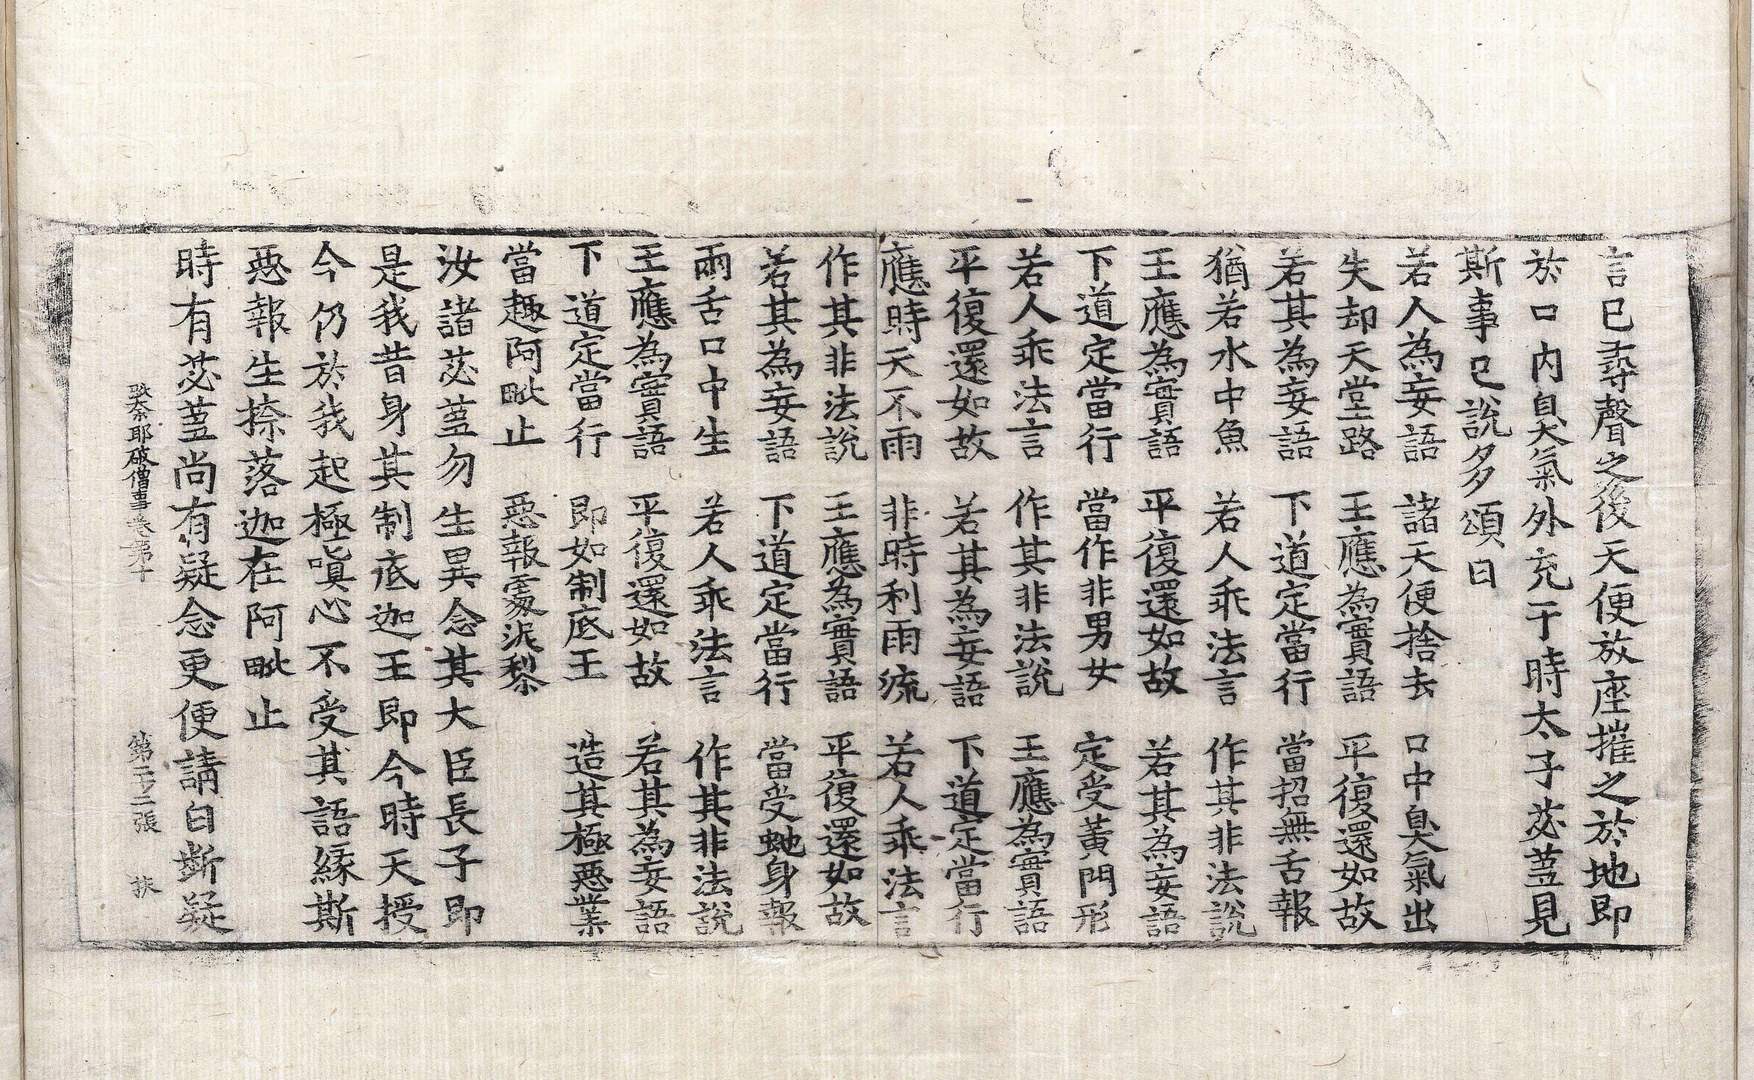 言已尋聲之後天便放座摧之於地即
於口內臭氣外充于時太子苾蒭見
斯事已說多頌曰
若人為妄語　諸天便捨去　口中臭氣出
失却天堂路　王應為實語　平復還如故
若其為妄語　下道定當行　當招無舌報
猶若水中魚　若人乖法言　作其非法說
王應為實語　平復還如故　若其為妄語
下道定當行　當作非男女　定受黃門形
若人乖法言　作其非法說　王應為實語
平復還如故　若其為妄語　下道定當行
應時天不雨　非時利雨流　若人乖法言
作其非法說　王應為實語　平復還如故
若其為妄語　下道定當行　當受虵身報
兩舌口中生　若人乖法言　作其非法說
王應為實語　平復還如故　若其為妄語
下道定當行　即如制底王　造其極惡業
當趣阿毗止　惡報處泥黎
汝諸苾蒭勿生異念其大臣長子即
是我昔身其制底迦王即今時天授
今仍於我起極嗔心不受其語緣斯
惡報生捺落迦在阿毗止
時有苾蒭尚有疑念更便請白斷疑
耶破僧事卷第十　第二十二張　扶